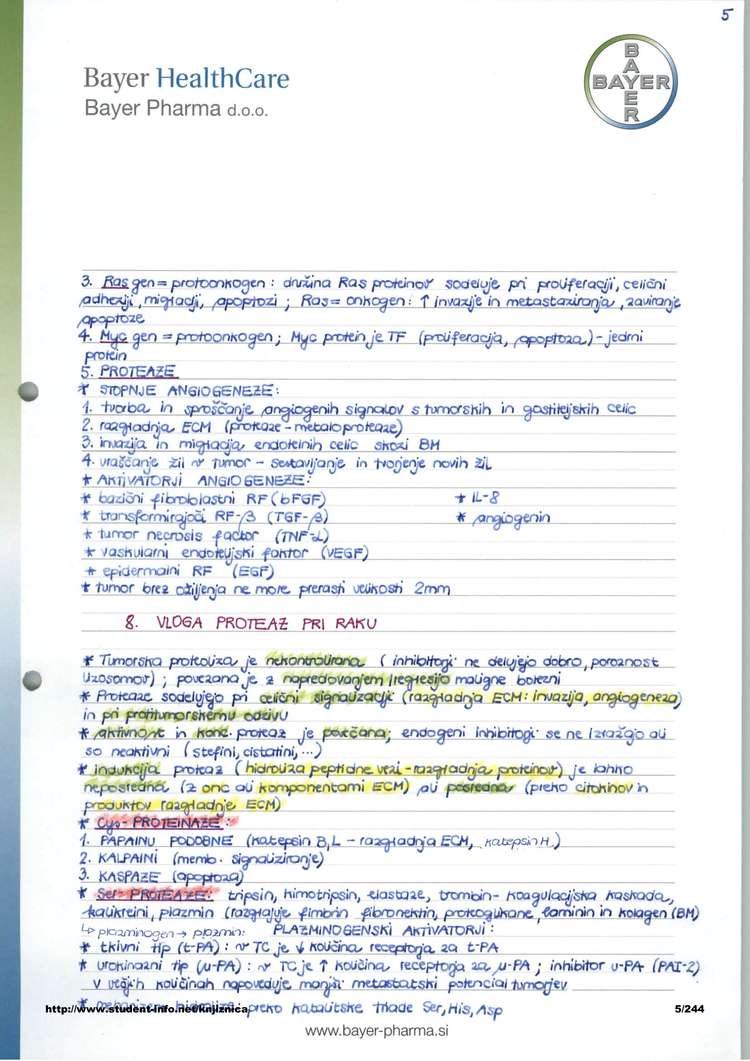 5
Bayer HealthCare
Bayer Pharma d.o.o.
BAYER
BAYER
3. Ras gen = protoonkogen : družina Ras proteinov sodeluje pri proliferaciji, celični
adheziji, migraciji, apoptozi ; Ras = onkogen: ↑ invazije in metastaziranja, zaviranje
apoptoze
4. Myc gen = protoonkogen ; Myc protein je TF (proliferacija, apoptoza) - jedrni
protein
5. PROTEAZE
* STOPNJE ANGIOGENEZE:
1. tvorba in sproščanje angiogenih signalov s tumorskih in gostiteljskih celic
2. razgradnja ECM (proteaze - metaloproteaze)
3. invazija in migracija endotelnih celic skozi BM
4. vraščanje žil v tumor - sestavljanje in tvorjenje novih žil
* AKTIVATORJI ANGIOGENEZE:
* bazični fibroblastni RF (bFGF) * IL-8
* transformirajoči RF-β (TGF-β) * angiogenin
* tumor necrosis factor (TNF-α)
* vaskularni endoteljski faktor (VEGF)
* epidermalni RF (EGF)
* tumor brez ožiljenja ne more prerasti velikosti 2mm
8. VLOGA PROTEAZ PRI RAKU
* Tumorska proteoliza je nekontrolirana (inhibitorji ne delujejo dobro, poroznost
lizosomov) ; povezana je z napredovanjem/regresijo maligne bolezni
* Proteaze sodelujejo pri celični signalizaciji (razgradnja ECM: invazija, angiogeneza)
in pri protitumorskemu odzivu
* aktivnost in konc. proteaz je povečana; endogeni inhibitorji se ne izražajo ali
so neaktivni (stefini, cistatini, ...)
* indukcija proteaz (hidroliza peptidne vezi - razgradnja proteinov) je lahko
neposredna (z onc ali komponentami ECM) ali posredna (preko citokinov in
produktov razgradnje ECM)
* Cys- PROTEINAZE :
1. PAPAINU PODOBNE (katepsin B,L - razgradnja ECM, katepsin H)
2. KALPAINI (memb. signaliziranje)
3. KASPAZE (apoptoza)
* Ser- PROTEAZE: tripsin, kimotripsin, elastaze, trombin - koagulacijska kaskada,
kalikreini, plazmin (razgrajuje fimbrin fibronektin, proteoglikane, laminin in kolagen (BM)
↳ plazminogen → plazmin: PLAZMINOGENSKI AKTIVATORJI :
* tkivni tip (t-PA) : v TC je ↓ količina receptorja za t-PA
* urokinazni tip (u-PA) : v TC je ↑ količina receptorja za u-PA ; inhibitor u-PA (PAI-2)
v večjih količinah napoveduje manjši metastatski potencial tumorjev
* mehanizem hidrolize preko katalitske triade Ser, His, Asp
http://www.student-info.net/knjiznica 5/244
www.bayer-pharma.si